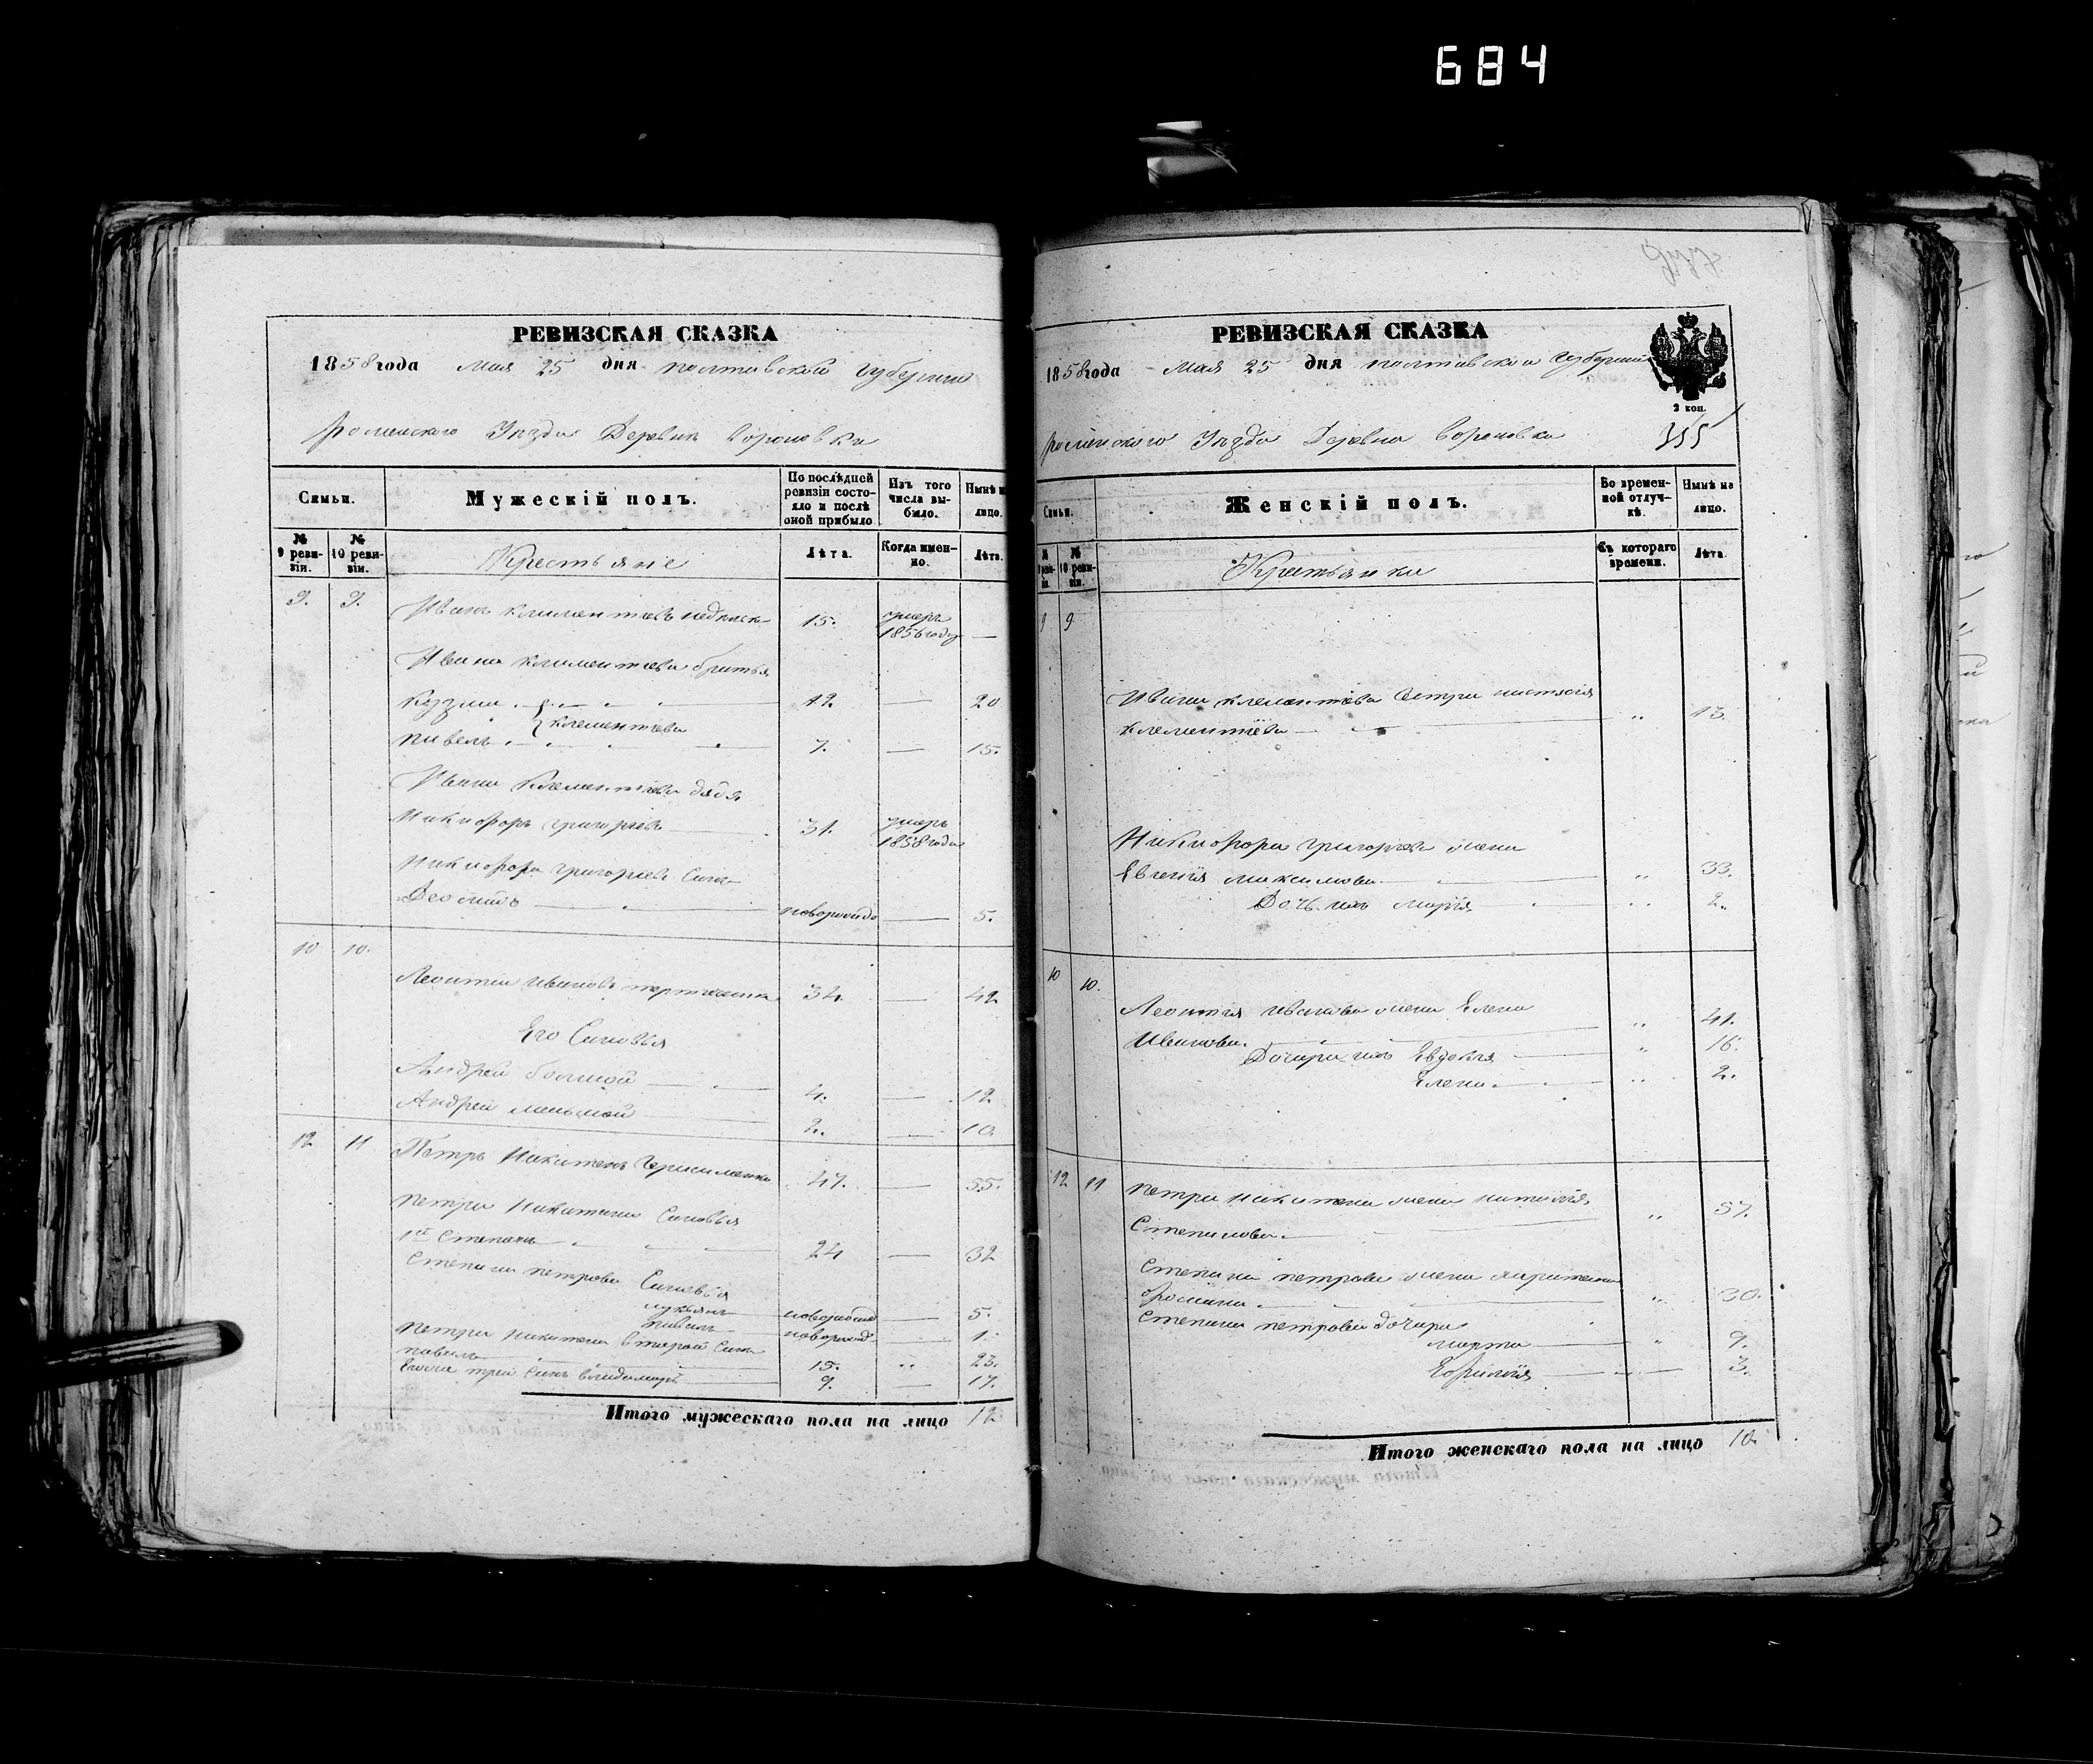 684
РЕВИЗСКАЯ СКАЗКА
1858 года Мая 25 дня полтавской губернии
роменского Уезда Деревни вороновки
Семьи.
Мужескій полъ.
По послѣдней ревизіи состояло и послѣ оной прибыло
Изъ того числа выбыло.
Нынѣ на лицо.
№ 9 ревизіи.
№ 10 ревизіи.
Крестьяне
Лѣта.
Когда именно.
Лѣта.
9. 9. Иванъ климентіевъ 15. умеръ 1856 году —
Ивана климентіева братья
Кузма 12 — 20
климентіеви
павелъ 7. — 15.
Ивана Климентіева дядя
Никифоръ григоріевъ 31. умеръ 1858 года
Никифора григоріева Синъ
Леонтъ новорожде — 5.
10 10.
Леонтій ивановъ 34. — 42
Его Сыновья
Андрей болшой 4. — 12
Андрей меньшой 2. — 10.
12 11 Петръ Никитенъ Герасименко 47. — 55.
петра Никитина Синовья
1й Степанъ 24 — 32
Степана петрова Синовья
лукьянъ новорожде — 5.
павелъ новорожд — 1.
петра никитина второй Синъ
павелъ 15. „ 23.
третій Синъ владимиръ 9. — 17.
Итого мужескаго пола на лицо 12
РЕВИЗСКАЯ СКАЗКА
1858 года Мая 25 дня полтавской губернии
2 коп.
роменского Уезда Деревни вороновки 355
Семьи.
Женскій полъ.
Во временной отлучкѣ.
Нынѣ на лицо.
№ 9 ревизіи.
№ 10 ревизіи.
Крестьянки
Съ котораго времени.
Лѣта.
9 9
Ивана климентіева Сестра настасія
климентіева „ 13.
Никифора григоріева жена
Евгенія максимова „ 33.
Дочь ихъ марія „ 2.
10 10.
Леонтія иванова жена Елена
Иванова. „ 41.
Дочери ихъ Евдокія „ 16.
Елена „ 2.
12 11 петра никитена жена наталія
Степанова „ 57.
Степана петрова жена
„ 30.
Степана петрова дочери
марта „ 9.
Ефимія — 3.
Итого женскаго пола на лицо 10.